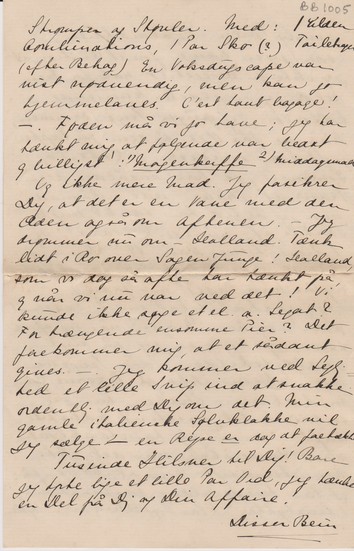 BB 1005
Strømper og Støvler. Med: 1 Ulden
Combinations, 1 Par Sko (?) Toilettager
(efter Behag) En Voksdugscape var
vist nødvendig, men kan jo
hjemmelaves. C'est tout bagage!
—. Føden må vi jo have; jeg har
tænkt mig, at følgende var bedst
og billigst: 1) Morgenkaffe 2) Middagsmad
Og Ikke mere Mad. Jeg
Dig, at det er en Vane med den
Æden også om Aftenen. — Jeg
drømmer nu om Sealland. Tænk
lidt i Ro over Sagen Junge! Sealland,
som vi dog så ofte har tænkt på
og når vi nu var ved det! Vi
kunde ikke
For hængende ensomme Piger? Det
forekommer mig, at et sådant
gives. —. Jeg kommer ved
hed et lille Svip ind at snakke
ordentli. med Dig om det. Min
gamle italienske Sølvklokke vil
jeg sælge — en Rejse er dog at foretrække
Tusinde Hilsner til Dig! Bare
jeg fik lige et lille Par Ord, jeg tænker
en Del på Dig og Din Affaire.
Disser Bein